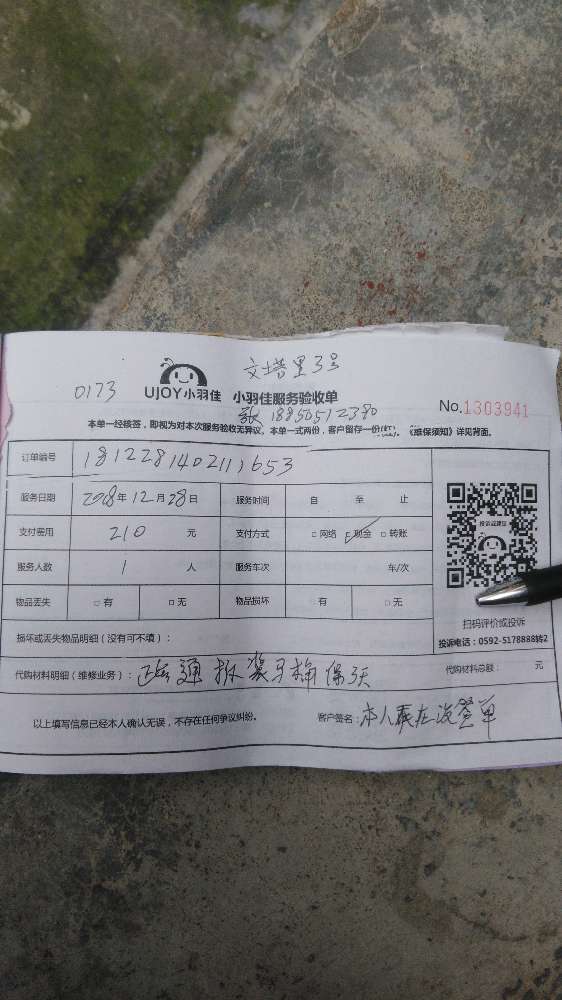 文塔里3号
0173 UJOY小羽佳 小羽佳服务验收单 No.1303941
张 18850512380
本单一经核签，即视为对本次服务验收无异议。本单一式两份，客户留存一份(红)。《维保须知》详见背面。
订单编号 1812281402111653
服务日期 2018年12月28日 服务时间 自 至 止
支付费用 210 元 支付方式 □ 网络 □ 现金 □ 转账
服务人数 1 人 服务车次 车/次
物品丢失 □ 有 □ 无 物品损坏 □ 有 □ 无
投诉或建议
扫码评价或投诉
投诉电话：0592-5178888转2
损坏或丢失物品明细（没有可不填）：
代购材料明细（维修业务）： 通 拆装马桶 保3天 代购材料总额： 元
以上填写信息已经本人确认无误，不存在任何争议纠纷。 客户签名：本人不在没签单